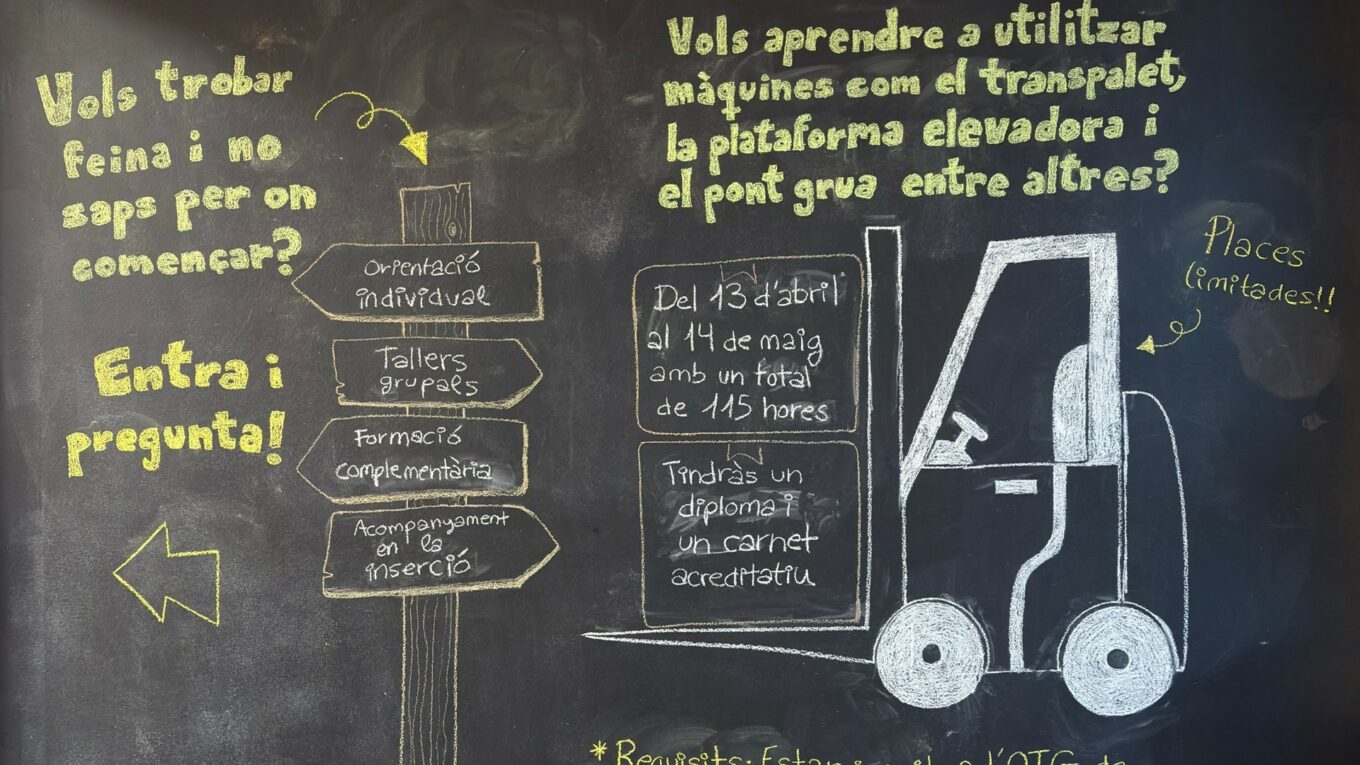 Vols trobar
feina i no
saps per on
començar?
Entra i
pregunta!
Orientació
individual
Tallers
grupals
Formació
complementària
Acompanyament
en la
inserció
Vols aprendre a utilitzar
màquines com el transpalet,
la plataforma elevadora i
el pont grua entre altres?
Places
limitades!!
Del 13 d'abril
al 14 de maig
amb un total
de 115 hores
Tindràs un
diploma i
un carnet
acreditatiu
*Requisits: Estar a l'OTG de